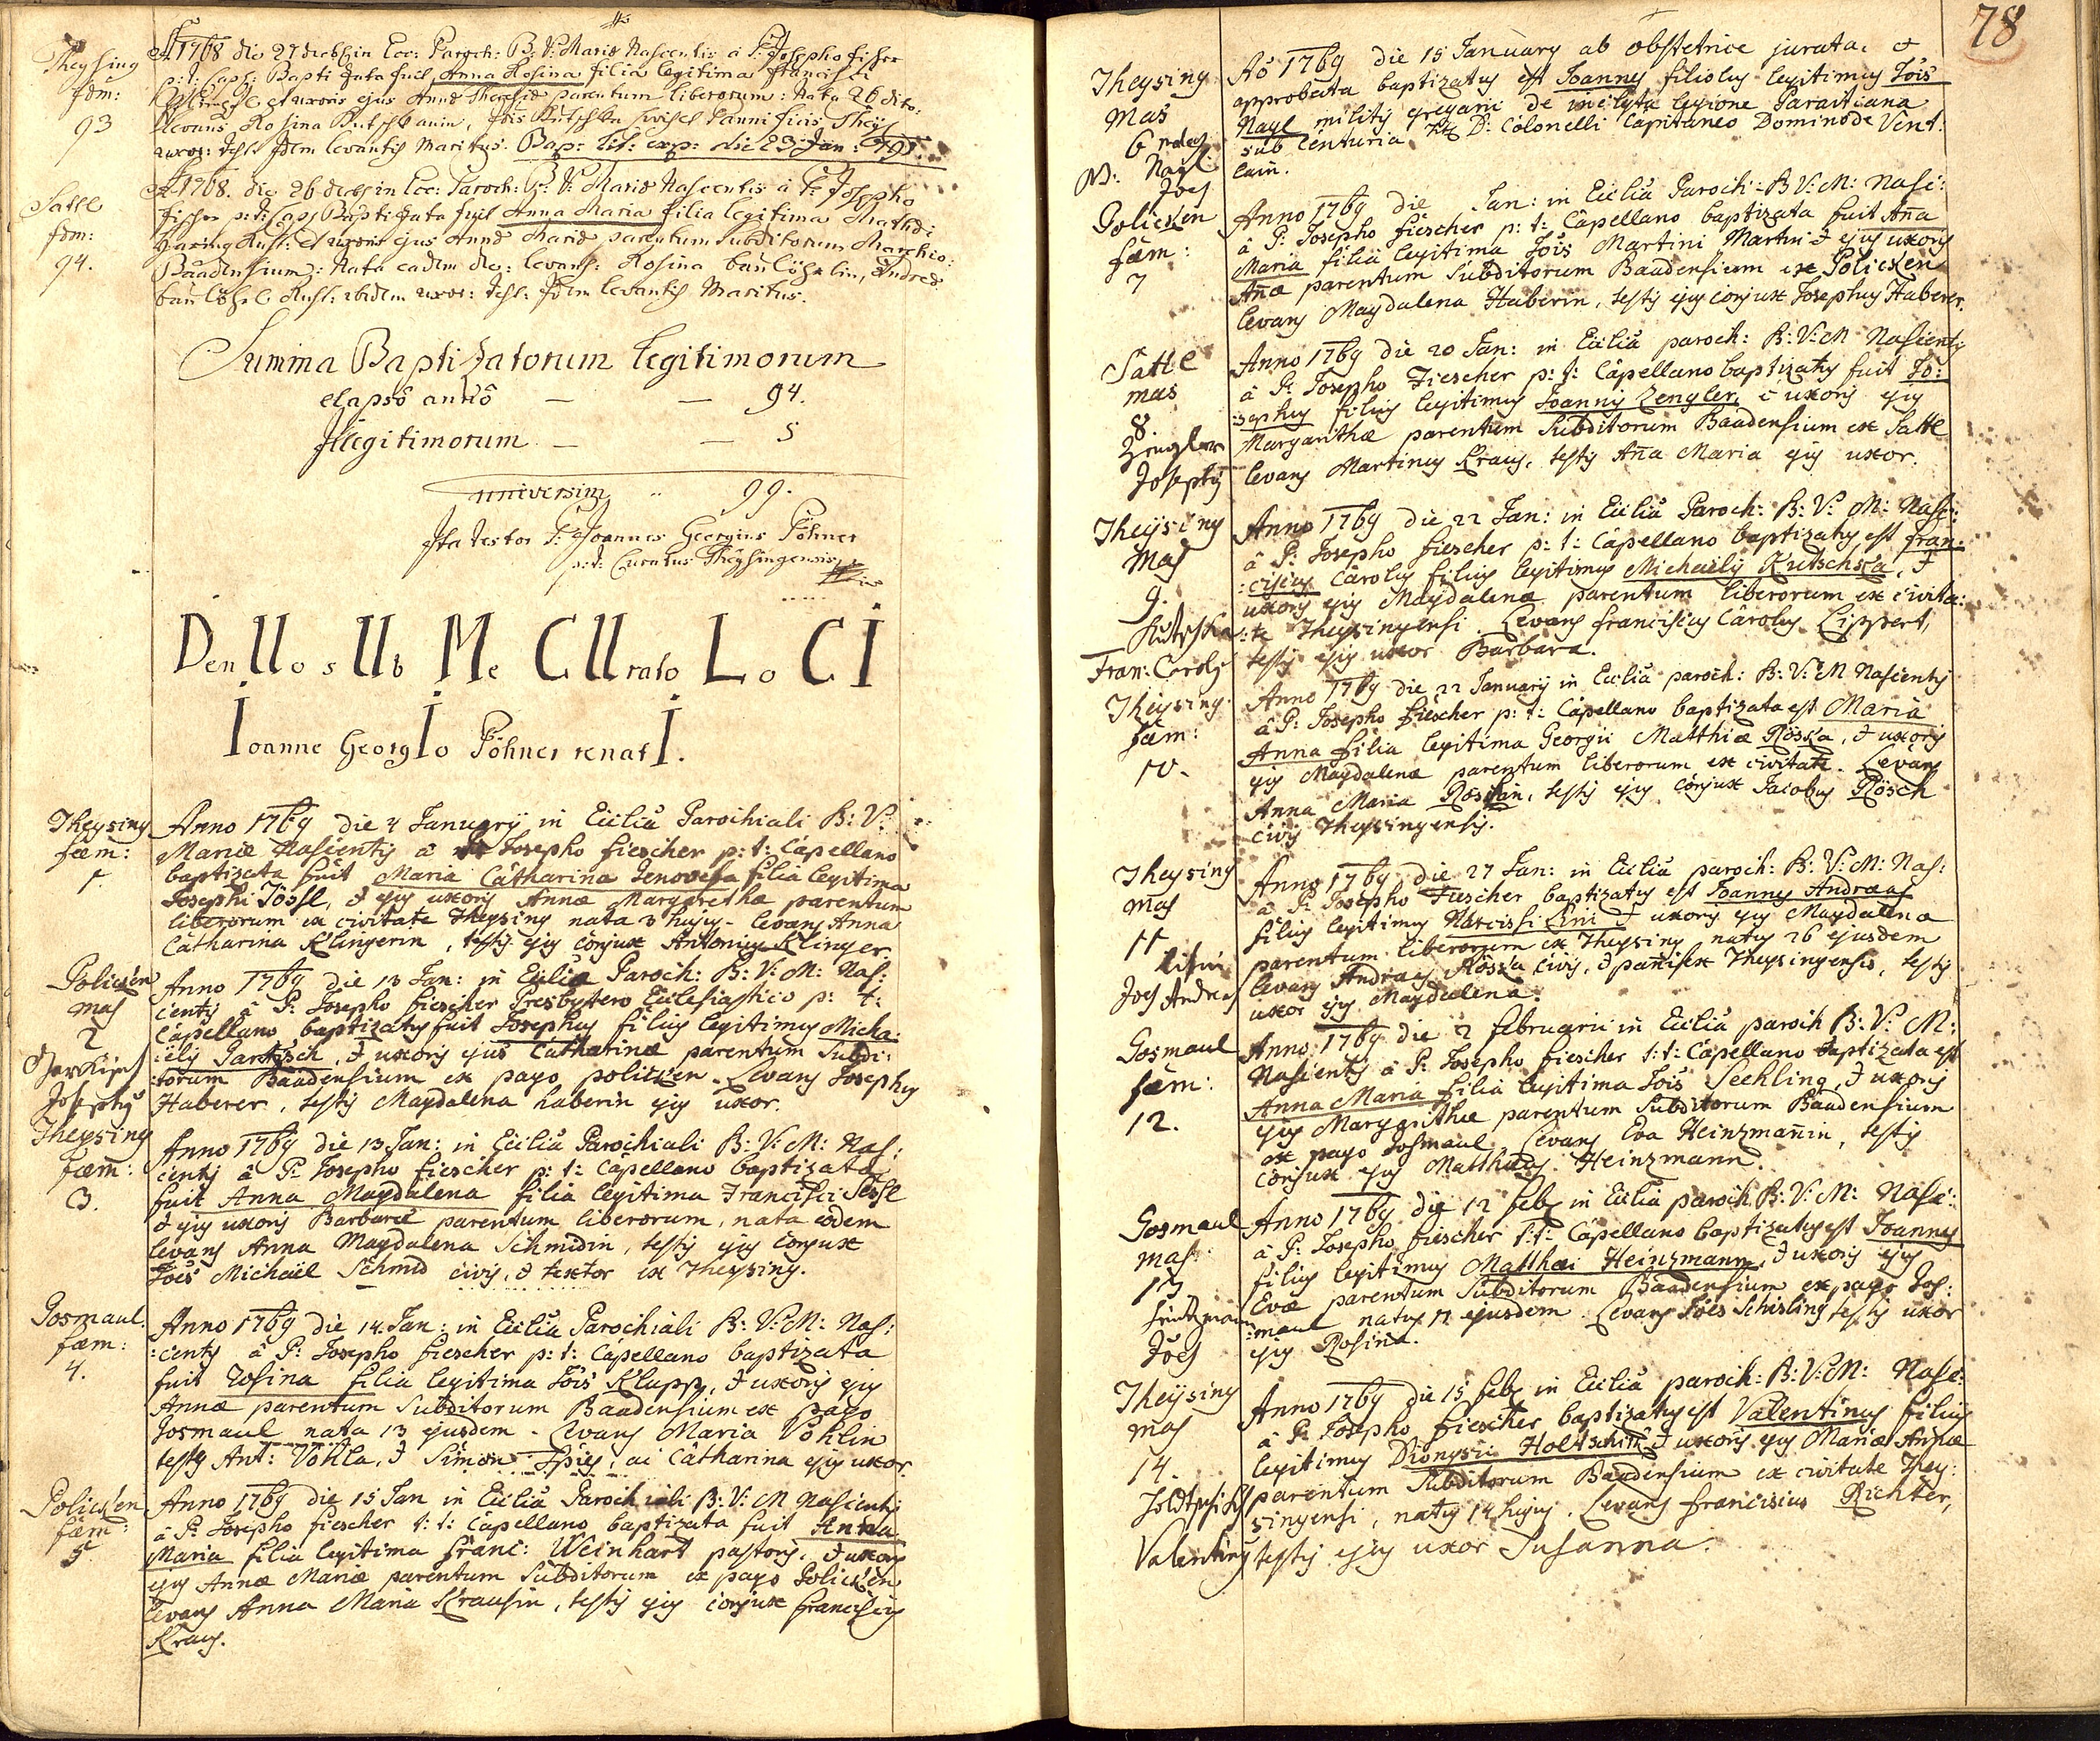 Theysing
fem:
93
A. 1768 die 27 decbr in Ecc: Paroch: B: V: Mariæ Nascentis à P. Josepho Fischer
p: t: Capl: Baptizata fuit Anna Rosina filia legitima Francisci
et uxoris ejus Annæ Theresiæ parentum liberorum: Nata 26 dito:
levans Rosina Kutschkanin, Jois Kutschka civis et Pannificis Theys:
uxor: test: idem levantis Maritus. Bap: lit: exp: die 23 Jan: 791.
Sattl
fem:
94.
A. 1768. die 26 decbr in Ecc: Paroch: B: V: Mariæ Nascentis à P. Josepho
Fischer p: t: Capl Baptizata fuit Anna Maria filia legitima Mathæi
Haring Rust: et uxoris ejus Annæ Mariæ parentum Subditorum Marchio:
Baadensium: Nata eadem die: levans: Rosina , Andreæ
Rust: ibidem uxor: test: Idem levantis Maritus.
Summa Baptizatorum legitimorum
elapso anno — — 94.
Illegitimorum — — 5
universim .. 99.
Ita testor P. Joannes Georgius Pöhner
p: t: Curatus Theysingensis
DenUo sUb Me CUrato Lo CI
Ioanne GeorgIo Pöhner renatI.
Theysing
fæm:
1.
Anno 1769 die 4 January in Ecclia Parochiali B: V:
Mariæ Nascentis à P. Josepho fiescher p: t: Capellano
baptizata fuit Maria Catharina Genovefa filia legitima
Josephi Jössl, & ejus uxoris Annæ Margarethæ parentum
liberorum ex civitate Theysing nata 3 hujus - levans Anna
Catharina Klingerin, testis ejus conjux Antonius Klinger.
Policken
mas
2
Josephus
Anno 1769 die 13 Jan: in Ecclia Paroch: B: V: M: Nas:
centis à P: Josepho fiescher Presbytero Ecclesiastico p: t:
Capellano baptizatus fuit Josephus filius legitimus Micha:
:elis Gartisch, & uxoris ejus Catharinæ parentum Subdi:
:torum Baadensium ex pago policken - Levans Josephus
Haberer, testis Magdalena haberin ejus uxor.
Theysing
Fæm:
3.
Anno 1769 die 13 Jan: in Ecclia Parochiali B: V: M: Nas:
centis à P: Josepho fiescher p: t: Capellano baptizata
fuit Anna Magdalena filia legitima Francisci Jessl
& ejus uxoris Barbaræ parentum liberorum, nata eodem
levans Anna Magdalena Schmidin, testis ejus conjux
Joês Michael Schmid civis, & textor ex Theysing.
Gosmaul.
fæm:
4.
Anno 1769 die 14. Jan: in Ecclia Parochiali B: V: M: Nas:
:centis à P: Josepho fiescher p: t: Capellano baptizata
fuit Rosina filia legitima Jois Klupp, & uxoris ejus
Annæ parentum Subditorum Baadensium ex pago
Gosmaul nata 13 ejusdem - Levans Maria Vöhlin
testis Ant: Vöhla, & Simon Spies, ac Catharina ejus uxor.
Policken
fæm:
5.
Anno 1769 die 15 Jan in Ecclia Parochiali B: V: M Nascentis
à P: Josepho fiescher t: t: Capellano baptizata fuit Anna
Maria filia legitima franc: Weinhart pastoris, & uxoris
ejus Annæ Mariæ parentum Subditorum ex pago Policken
levans Anna Maria Krausin, testis ejus conjux franciscus
Kraus.
78
Theysing
mas
6
NB: Nagl
Joes
Aõ 1769 die 15 January ab obstetrice jurata &
approbata baptizatus est Joannes filiolus legitimus Jois
Nagl militis gregarii de inclyta legione
sub Centuria Tit D: Colonelli Capitaneo Domino de Vent:
lain.
Policken
fæm:
7
Anno 1769 die Jan: in Ecclia Paroch: B V: M: Nasc:
à P: Josepho fiescher p: t: Capellano baptizata fuit Aña
Maria filia legitima Jois Martini Martin & ejus uxoris
Añæ parentum Subditorum Baadensium ex Policken
levans Magdalena Haberin, testis ejus conjux Josephus Haberer.
Sattl
mas
8.
Zengler
Josephus
Anno 1769 die 20 Jan: in Ecclia paroch: B: V: M Nascentis
à P: Josepho Fiescher p: t: Capellano baptizatus fuit Jo:
:sephus filius legitimus Joannis Zengler, & uxoris ejus
Margarithæ parentum Subditorum Baadensium ex Sattl
levans Martinus Kraus, testis Aña Maria ejus uxor.
Theysing
Mas
9.
Kutschka
Fran: Carolus
Anno 1769 die 22 Jan: in Ecclia Paroch: B: V: M: Nasc:
à P: Josepho fiescher p: t: Capellano baptizatus est fran:
:ciscus Carolus filius legitimus Michaelis Kutschka, &
uxoris ejus Magdalenæ parentum liberorum ex civita:
:te Theysingensi. Levans franciscus Carolus Lippert,
testis ejus uxor Barbara.
Theysing
fæm:
10.
Anno 1769 die 22 January in Ecclia paroch: B: V: M Nascentis
à P: Josepho fiescher p: t: Capellano baptizata est Maria
Anna filia legitima Georgii Matthiæ Röska, & uxoris
ejus Magdalenæ parentum liberorum ex civitate. Levans
Anna Maria Röskin, testis ejus conjux Jacobus Rösch
civis Theysingensis.
Theysing
mas
11
Joes Andreas
Anno 1769 die 27 Jan: in Ecclia paroch: B: V: M: Nas:
à P: Josepho Fiescher baptizatus est Joannes Andreas
filius legitimus Narcissi Lini & uxoris ejus Magdalena
parentum liberorum ex Theysing natus 26 ejusdem
levans Andreas Röska civis, & panifex Theysingensis, testis
uxor ejus Magdalena.
Gosmaul
fæm:
12.
Anno 1769 die 2 februarii in Ecclia paroch B: V: M:
Nascentis à P: Josepho fiescher t: t: Capellano baptizata est
Anna Maria filia legitima Jois Seehling, & uxoris
ejus Margarithæ parentum Subditorum Baadensium
ex pago Gosmaul. Levans Eva Heinzmañin, testis
conjux ejus Matthæus Heinzmann.
Gosmaul
mas:
13
Joes
Anno 1769 die 12 feb in Ecclia paroch B: V: M: Nasc:
à P: Josepho fiescher t: t: Capellano baptizatus est Joannes
filius legitimus Matthæi Heinzmann, & uxoris ejus
Evæ parentum Subditorum Baadensium ex pago Gos:
:maul natus 11 ejusdem. Levans Joês Schisling testis uxor
ejus Rosina.
Theysing
mas
14.
Valentinus
Anno 1769 die 15 feb in Ecclia paroch: B: V: M: Nasc:
à P: Josepho fiescher baptizatus est Valentinus filius
legitimus Dionysii Holtschick & uxoris ejus Mariæ Annæ
parentum Subditorum Baadensium ex civitate They:
singensi, natus 14 hujus. Levans franciscus Richter,
testis ejus uxor Susanna.